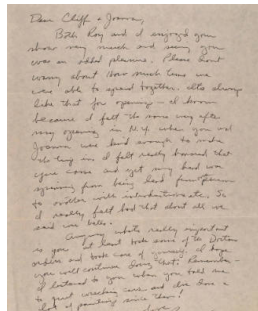 Dear Cliff + Joanna,
Both Roy and I enjoyed your
show very much and seeing you
was an added pleasure. Please don't
worry about how much time we
were able to spend together. It's always
like that for openings – I know
because I felt the same way after
my opening in N.Y. when you and
Joanna were kind enough to make
the long in. I felt really honored that
you came and yet my head was
spinning from being from person
to another with introductions etc. So
I really felt bad that about all we
said was hello.
Anyway what's really important
is you at least took some of the Doctors
orders and took care of yourself. I hope
you will continue doing that! Remember –
I listened to you when you told me
to quit wrecking cars and I've done a
lot of painting since then!